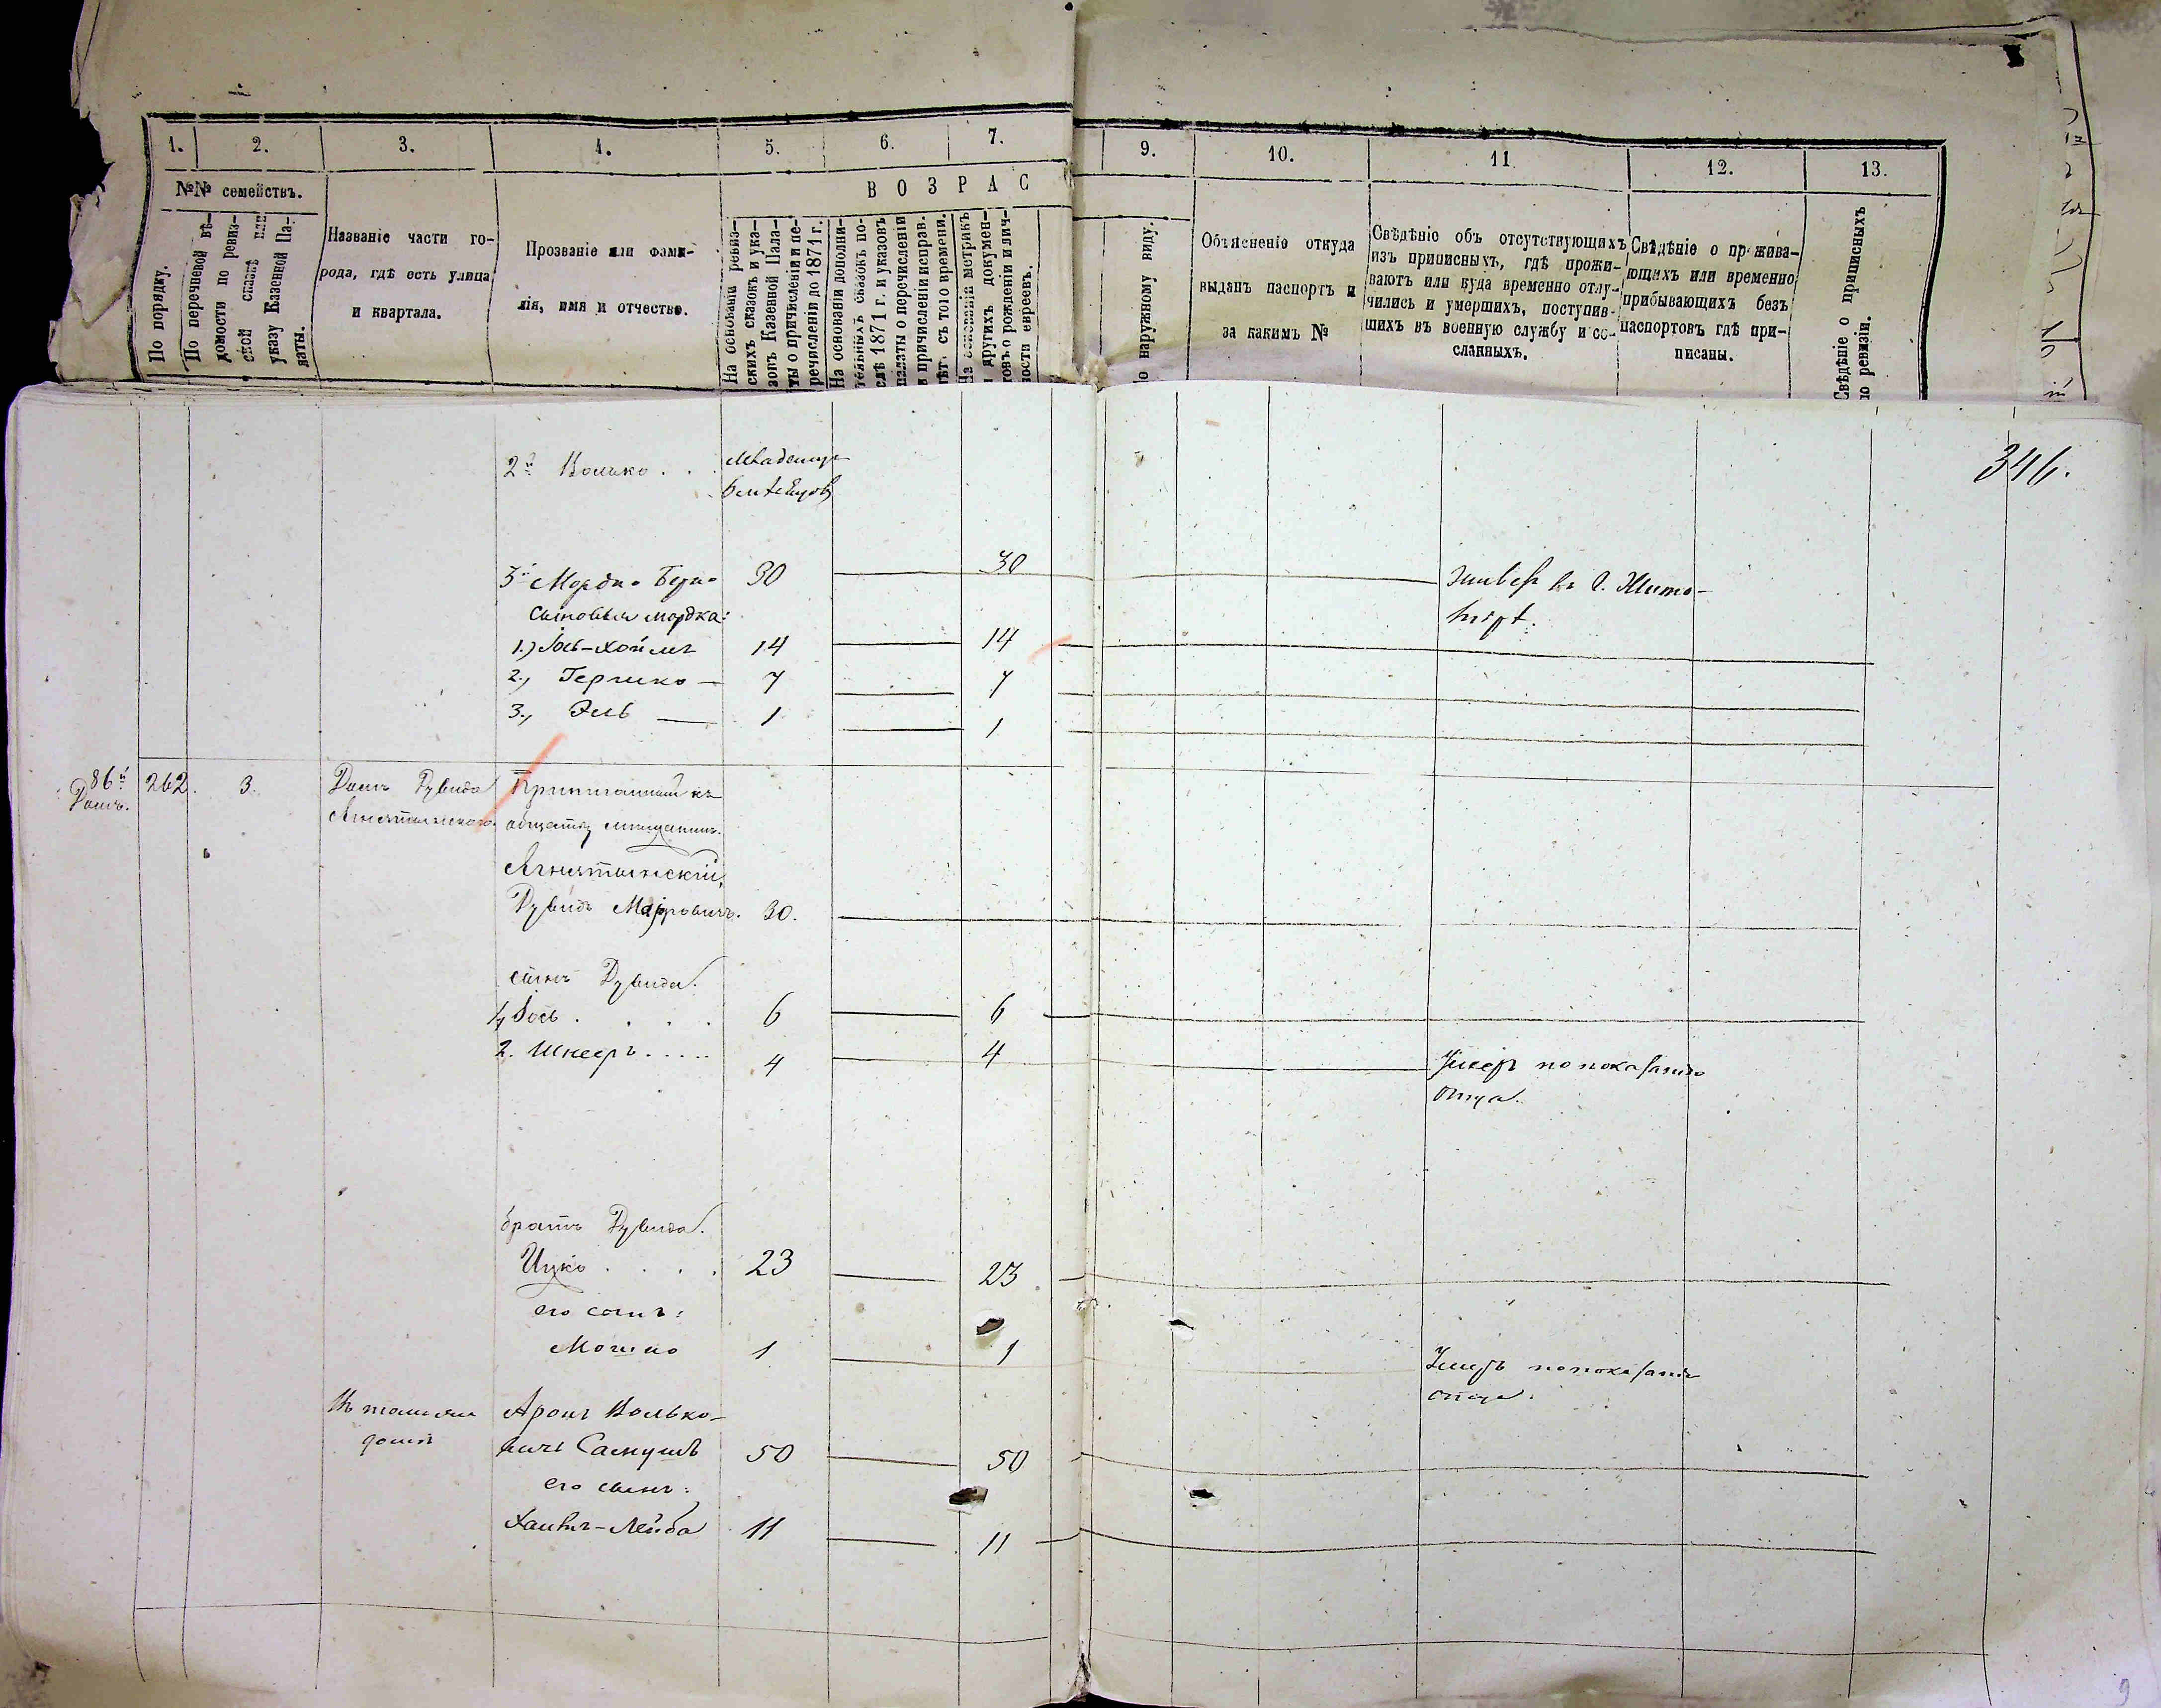 1.
2.
3.
4.
5.
6.
7.
9.
10.
11
12.
13.
№№ семействъ.
В О З Р А С
По порядку.
По перечневой вѣ-
домости по ревиз-
ской сказкѣ или
указу Казенной Па-
латы.
Названіе части го-
рода, гдѣ есть улица
и квартала.
Прозваніе или фами-
лія, имя и отчество.
На основаніи ревиз-
скихъ сказокъ и ука-
зовъ Казенной Пала-
ты о причисленіи и пе-
речисленіи до 1871 г.
На основаніи дополни-
тельныхъ сказокъ по-
слѣ 1871 г. и указовъ
палаты о перечисленіи
и причисленіи исправ.
лѣтъ съ того времени.
На основаніи метрикъ
и другихъ докумен-
товъ о рожденіи и лич-
ности евреевъ.
о наружному виду.
Объясненіе откуда
выданъ паспортъ и
за какимъ №
Свѣдѣніе объ отсутствующихъ
изъ приписныхъ, гдѣ прожи-
ваютъ или куда временно отлу-
чились и умершихъ, поступив-
шихъ въ военную службу и со-
сланныхъ.
Свѣдѣніе о прожива-
ющихъ или временно
прибывающихъ безъ
паспортовъ гдѣ при-
писаны.
Свѣдѣніе о приписныхъ
по ревизіи.
346.
2й Волько . .
3й Мордко Берко 30 30
сыновья мордка:
1.) Іось-Хоймъ 14 14
2., Гершко — 7 7
3., Эль — 1 1
86й
Домъ.
262. 3. Домъ Дувида Приписанный къ
обществу мещанинъ.
Дувидъ 30.
сынъ Дувида.
1, Іось . . . . 6 6
2. Шнееръ . . . . . 4 4 Умеръ по показанію
отца.
братъ Дувида.
Ицко . . . . 23 23
его сынъ:
Мошко 1 1 Умеръ по показанію
отца.
Въ томъ же Аронъ Волько-
домѣ вичъ 50 50
его сынъ:
Хаимъ-Лейба 11 11
9